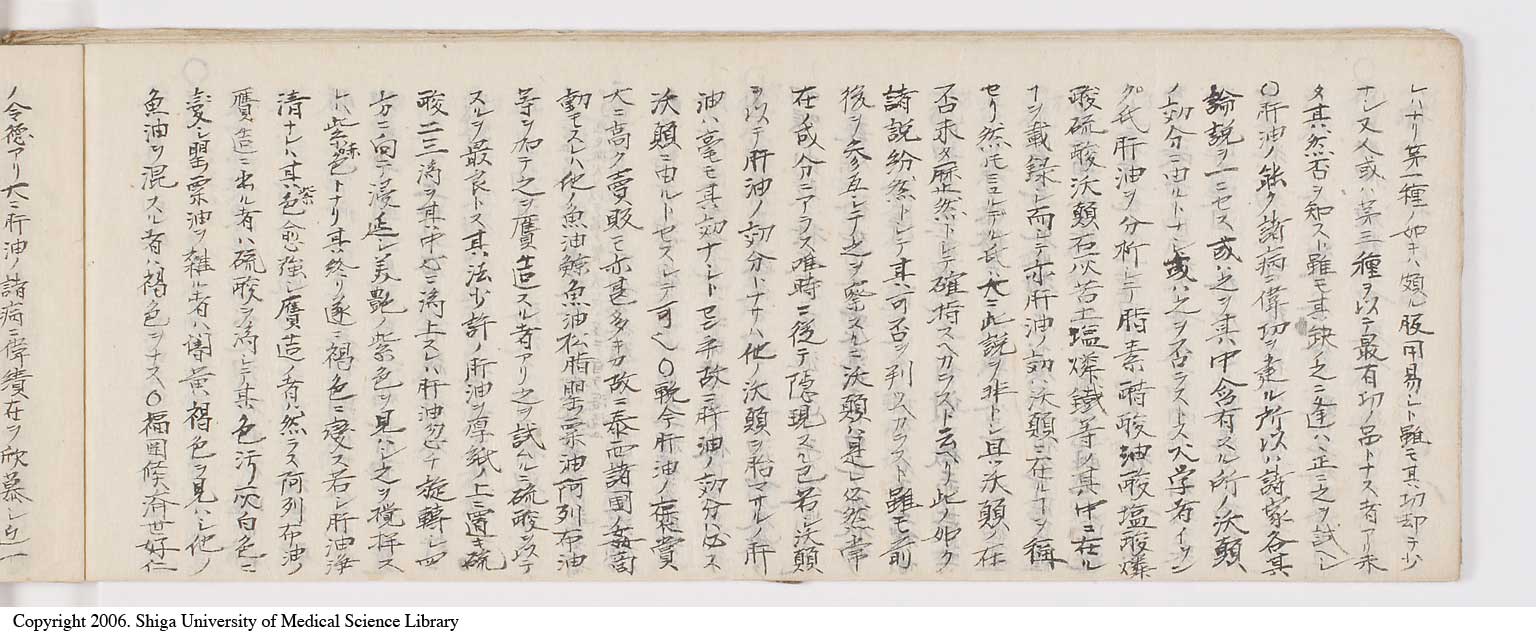 レハナリ第一種ノ如キハ頗ル服用易シト雖モ其功却テ少
ナシ又人或ハ第三種ヲ以テ最有功ノ品トナス者アリ未
タ其然否ヲ知スト雖モ其缺乏ニ逢ハ正ニ之ヲ試ヘシ
〇肝油ノ能ク諸病ニ偉功ヲ建ル所以ハ諸家各其
論説ヲ一ニセス或ハ之ヲ其中含有スル所ノ沃顛
ノ効分ニ由ルトナシ或ハ之ヲ否ラストス大学者イヮン
グ氏肝油ヲ分析シテ脂素醋酸油酸塩酸燐
酸硫酸沃顛石灰苦土塩燐鐵等ノ其中ニ在ル
ヿヲ載録シ而シテ亦肝油ノ効ハ沃顛ニ在ルヿヲ稱
セリ然モミュルデル氏ハ大ニ此説ヲ非トシ且ハ沃顛ノ在
否未タ歴然トシテ確持スヘカラスト云ヘリ此ノ如ク
諸説紛然トシテ其可否ヲ判ツヘカラスト雖モ前
後ヲ参互シテ之ヲ察スルニ沃顛ハ是レ必然常
在ノ成分ニアラス唯時ニ従テ隠現スル已若シ沃顛
ヲ以テ肝油ノ効分トナサハ他ノ沃顛ヲ胎マサルノ肝
油ハ毫モ其功ナシトセン乎故ニ肝油ノ効分ハ必ス
沃顛ニ由ルトセスシテ可也〇輓今肝油ノ在賞
大ニ高ク賣販モ亦甚多キカ故ニ泰西諸国ノ姦商
動モスレハ他ノ魚油鯨魚油松脂罌粟油阿列布油
等ヲ加テ之ヲ贋造スル者アリ之ヲ試ルニ硫酸ヲ以テ
スルヲ最良トス其法少許ノ肝油ヲ厚紙ノ上ニ置キ硫
酸二三滴ヲ其中心ニ滴上スレハ肝油忽チ旋轉シ四
方ニ向テ漫延シ美艶ノ紫色ヲ見ハシ之ヲ攪拌ス
レハ紫赤色トナリ其終リ遂ニ褐色ニ変ス若シ肝油浄
清ナレハ其紫色愈強シ贋造ノ者ハ然ラス阿列布油ノ
贋造ニ出ル者ハ硫酸ヲ滴シテ其色汚灰白色ニ
変シ罌粟油ヲ雑ル者ハ闇黄褐色ヲ見ハシ他ノ
魚油ヲ混スル者ハ褐色ヲナス〇福国侯済世好仁
ノ令徳アリ大ニ肝油ノ諸病ニ偉績在ヲ欣慕シ